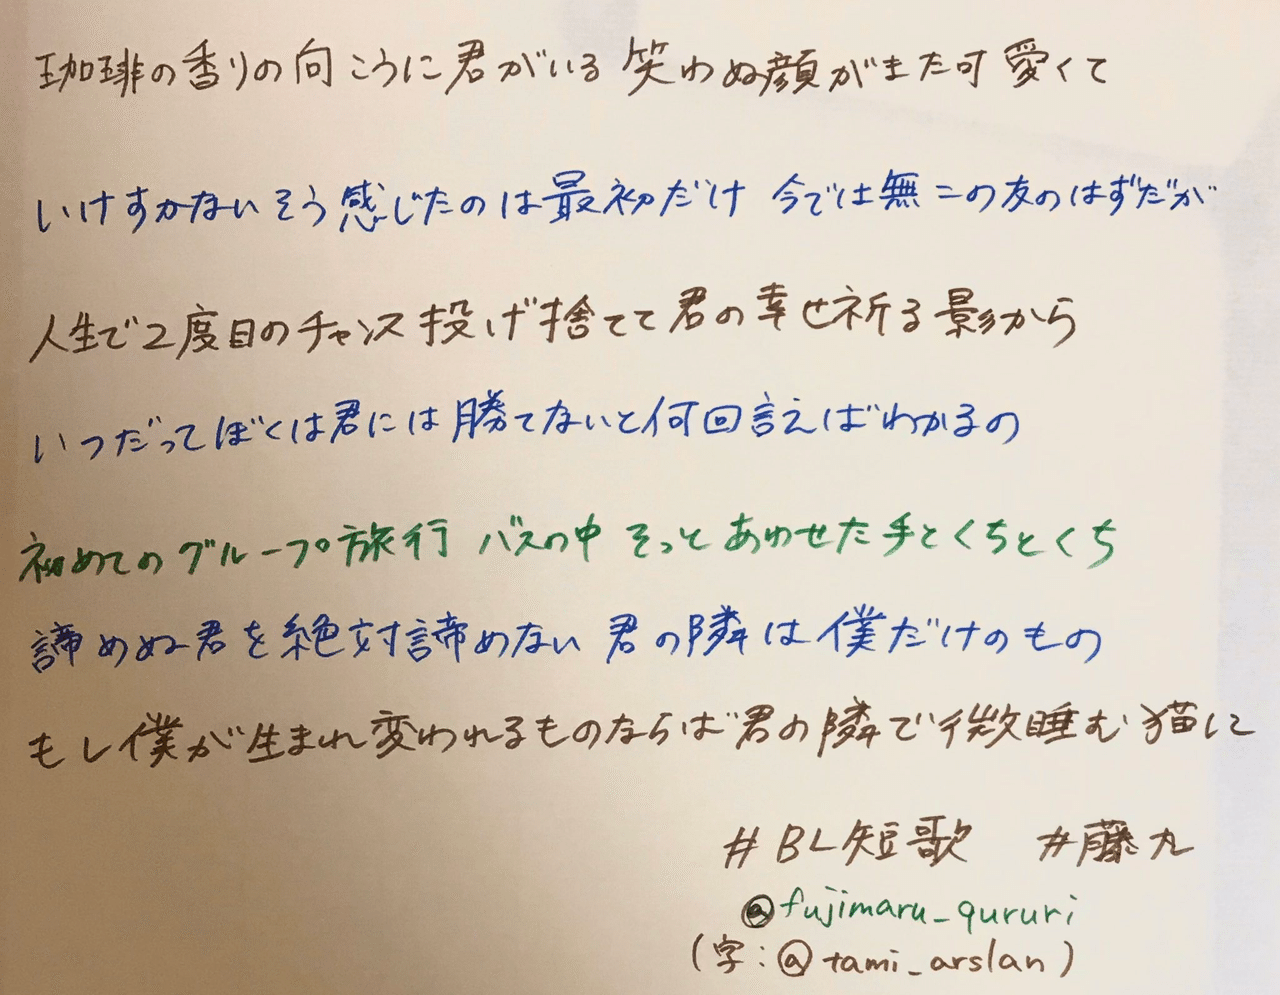 珈琲の香りの向こうに君がいる 笑わぬ顔がまた可愛くて
いけすかないそう感じたのは最初だけ 今では無二の友のはずだが
人生で2度目のチャンス投げ捨てて君の幸せ祈る影から
いつだってぼくは君には勝てないと何回言えばわかるの
初めてのグループ旅行 バスの中 そっとあわせた手とくちとくち
諦めぬ君を絶対諦めない 君の隣は僕だけのもの
もし僕が生まれ変われるものならば君の隣で微睡む猫に
#BL短歌 #藤丸
@fujimaru_qururi
(字:@tami_arslan)